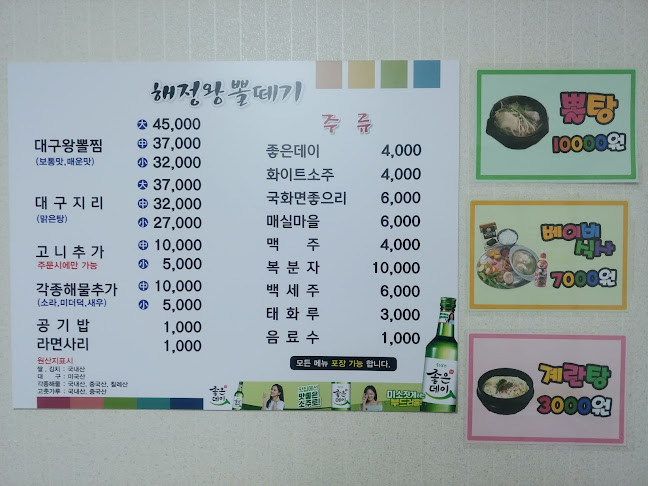 해정왕뽈떼기
대구왕뽈찜
(보통맛,매운맛)
大 45,000
中 37,000
小 32,000
대구지리
(맑은탕)
大 37,000
中 32,000
小 27,000
고니추가
주문시에만 가능
中 10,000
小 5,000
각종해물추가
(소라,미더덕,새우)
中 10,000
小 5,000
공기밥 1,000
라면사리 1,000
원산지표시
쌀, 김치 : 국내산
대 구 : 미국산
각종해물 : 국내산, 중국산, 칠레산
고춧가루 : 국내산, 중국산
주 류
좋은데이 4,000
화이트소주 4,000
국화면좋으리 6,000
매실마을 6,000
맥 주 4,000
복분자 10,000
백세주 6,000
태화루 3,000
음료수 1,000
모든 메뉴 포장 가능 합니다.
좋은데이
맛있는
소주로!
좋은데이
미소짓게하는
부드러움!
좋은데이
뽈탕
10000원
베이비
식사
7000원
계란탕
3000원